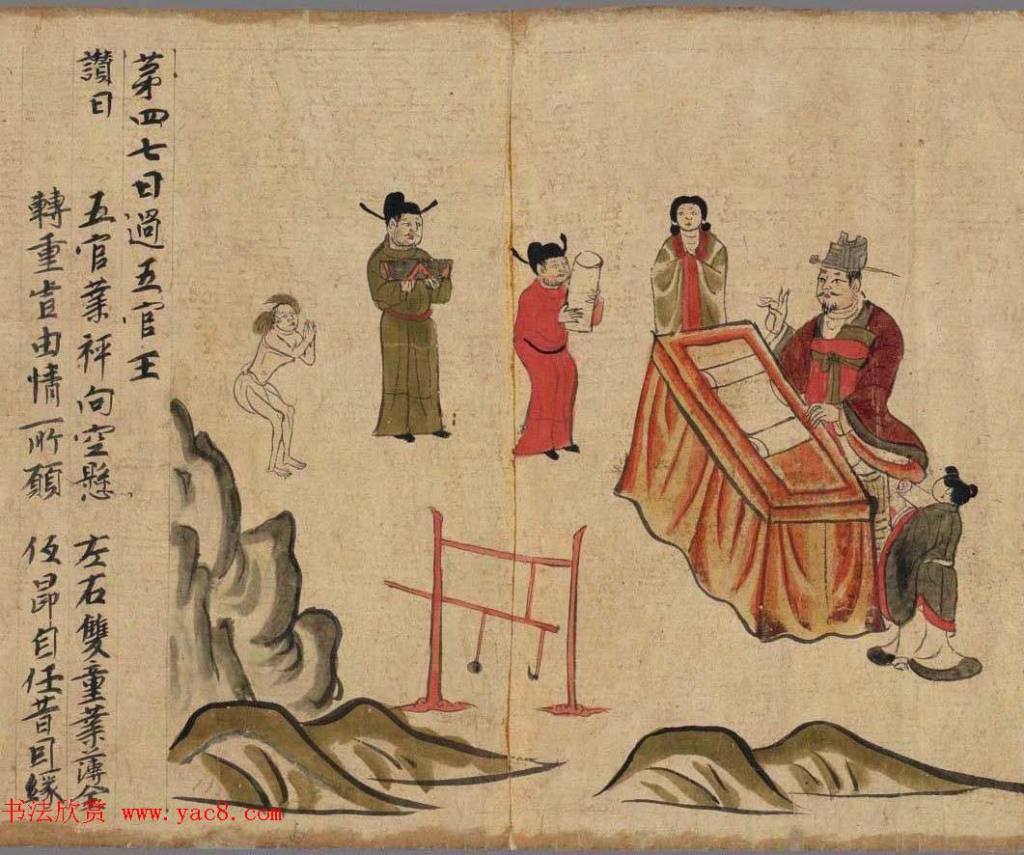 苐四七日過五官王
讚曰 五官業秤向空懸 左右雙童業薄全
轉重由情所願 昂自任昔囙緣
书法欣赏 www.yac8.com